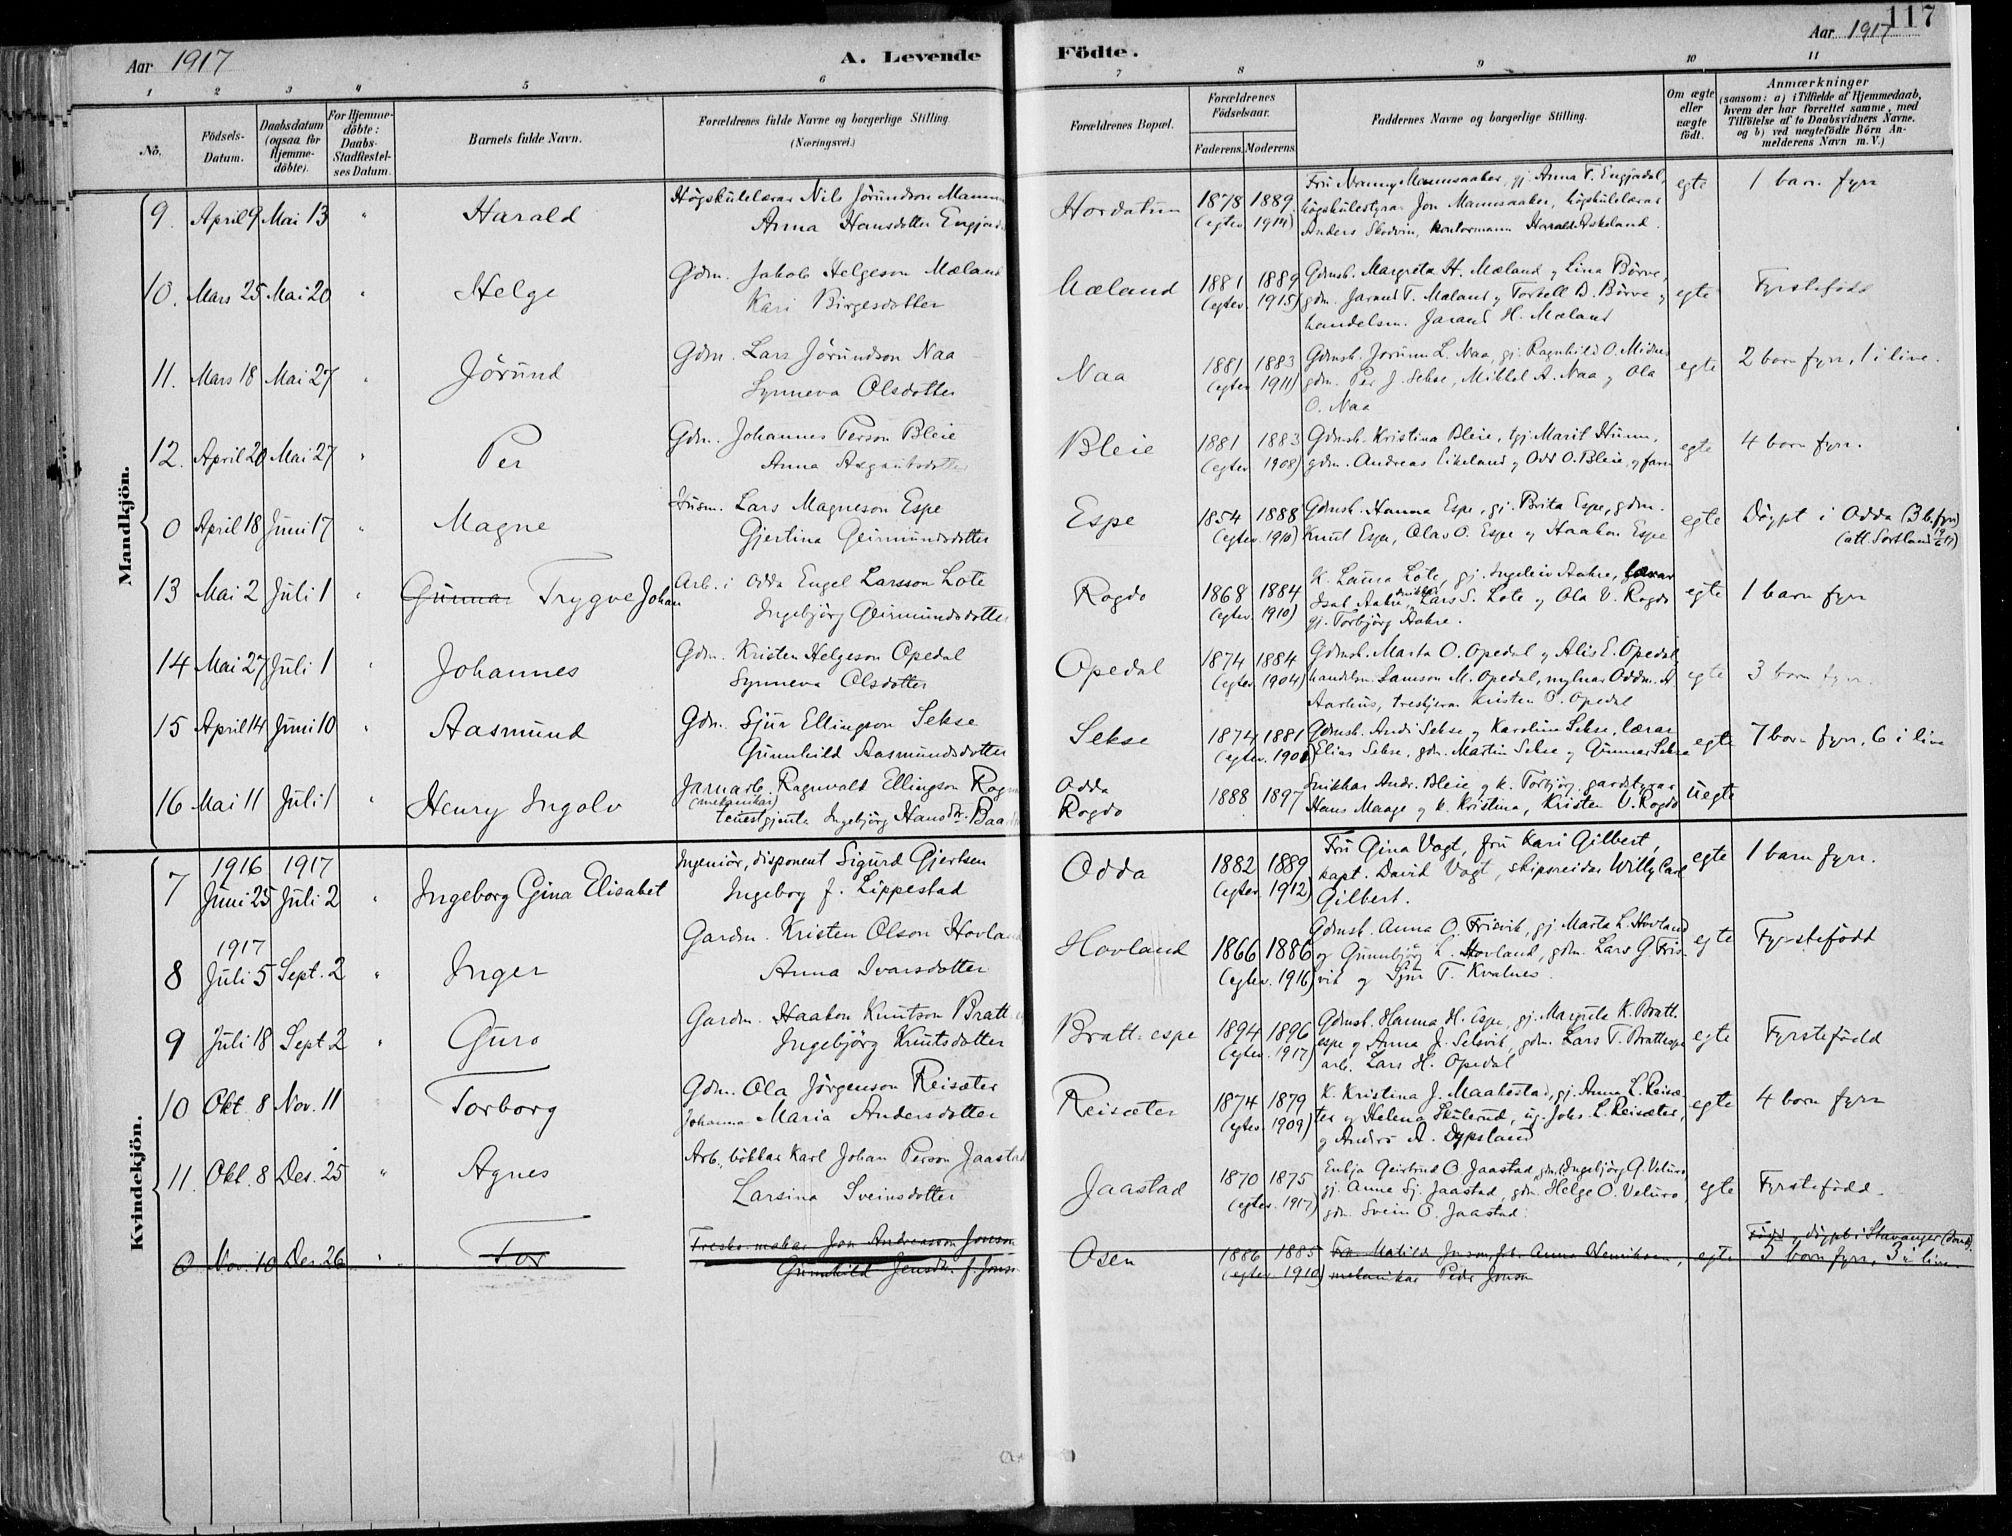 117
Aar 1917
A. Levende
Födte.
Aar 1917
1 2 3 4 5 6 7 8 9 10 11
No.
Födsels-Datum.
Daabsdatum (ogsaa for Hjemme-döbte).
For Hjemme-döbte: Daabs-Stadfæstel-ses Datum.
Barnets fulde Navn.
Forældrenes fulde Navne og borgerlige Stilling.
(Næringsvei.)
Forældrenes Bopæl.
Forældrenes Födselsaar.
Faderens. Moderens.
Faddernes Navne og borgerlige Stilling.
Om ægte eller uægte födt.
Anmærkninger
(saasom: a) i Tilfælde af Hjemmedaab,
hvem der har forrettet samme, med
Tilföielse af to Daabsvidners Navne.
og b) ved uægtefödte Börn An-
melderens Navn m. V.)
Mandkjön.
9. April 9 Mai 13 " Harald
Högskulelærar Nils Jörundson Mannss
Anna Hansdotter Engjadal
Hordatun 1878 1889 (egtev. 1914)
Fru Nanny Mannsaaker, gj. Anna T. Engjadal,
högskulestyrar Jon Mannsaaker, högskulelærar
Anders Skodvin, kontormann Harald Askeland.
egte 1 barn fyrr
10. Mars 25 Mai 20 " Helge
Gdm. Jakob Helgeson Mæland
Kari Birgesdotter
Mæland 1881 1889 (egtev. 1915)
Gdmsb. Margreta H. Mæland y Lina Börve,
gdm. Jarand T. Mæland y Torkell B. Börve y
handelsm. Jarand H. Mæland
egte Fyrstefödd
11. Mars 18 Mai 27 " Jörund
Gdm. Lars Jörundson Naa
Synneva Olsdotter
Naa 1881 1883 (egtev. 1911)
Gdmsb. Jorunn L. Naa, gj. Ragnhild O. Midnes
gdm. Per J. Sekse, Mikkel A. Naa y Ola
O. Naa
egte 2 born fyrr, 1 i live.
12. April 20 Mai 27 " Per
Gdm. Johannes Person Bleie
Anna Asgautsdotter
Bleie 1881 1883 (egtev. 1908)
Gdmsb. Kristina Bleie, tgj. Marit Hunn,
gdm. Andreas Eikeland y Odd O. Bleie, y faren
egte 4 born fyrr.
0 April 18 Juni 17 " Magne
Husm. Lars Magneson Espe
Gjertina Geirmundsdotter
Espe 1854 1888 (egtev. 1910)
Gdmsb. Hanna Espe, gj. Brita Espe, gdm.
Knut Espe, Olav O. Espe y Haakon Espe
egte Döypt i Odda (3 b. fyrr)
(att. Sortland 19/6 17)
13 Mai 2 Juli 1 " Gunnar Trygve Johan
Arb. i Odda Engel Larsson Lote
Ingebjörg Geirmundsdotter
Rogdo 1868 1884 (egtev. 1910)
K. Laura Lote, gj. Ingeleiv Aakre, lærar
Isal Aakre, snikkar Lars S. Lote y Ola V. Rogdo
gj. Torbjörg Aakre.
egte 1 barn fyrr
14 Mai 27 Juli 1 " Johannes
Gdm. Kristen Helgeson Opedal
Synneva Olsdotter
Opedal 1874 1884 (egtev. 1904)
Gdmsb. Marta O. Opedal y Alis E. Opedal,
handelsm. Samson M. Opedal, mylnar Oddm. A.
Aarhus, treskjerar Kristen O. Opedal
egte 3 born fyrr.
15 April 14 Juni 10 " Aasmund
Gdm. Sjur Ellingson Sekse
Gunnhild Aasmundsdotter
Sekse 1874 1881
Gdmsb. Andi Sekse y Karoline Sekse, lærar
Elias Sekse, gdm. Martin Sekse y Gunnar Sekse
egte 7 born fyrr, 6 i live
16 Mai 11 Juli 1 " Henry Ingolv
Jarnarb. Ragnvald Ellingson Rog
(mekanikar)
tenestgjenta Ingebjörg Hansdtr. Baa
Odda
Rogdo 1888 1897
Snikkar Andr. Bleie y k. Torbjörg, gardstyrar
Hans Maage y k. Kristina, Kristen V. Rogdo
uegte
Kvindekjön.
1916 1917
7 Juni 25 Juli 2 " Ingeborg Gina Elisabet
Ingeniör, disponent Sigurd Gjertsen
Ingeborg f. Lippestad
Odda 1882 1889 (egtev. 1912)
Fru Gina Vogt, fru Kari Gilbert,
kapt. David Vogt, skipsreidar Willy Carl
Gilbert.
egte 1 barn fyrr.
1917
8 Juli 5 Sept. 2 " Inger
Gardm. Kristen Olson Hovland
Anna Ivarsdotter
Hovland 1866 1886 (egtev. 1916)
Gdmsb. Anna O. Frisvik, gj. Marta L. Hovland
og Gunnbjör L. Hovland, gdm. Lars G. Fris-
vik og Sjur T. Kvalnes.
egte Fyrstefödd
9 Juli 18 Sept 2 " Guro
Gardm. Haakon Knutson Bratt-
Ingebjörg Knutsdotter
Bratt-espe 1894 1896 (egtev. 1917)
Gdmsb. Hanna H. Espe, gj. Margreta K. Bratt-
espe y Anna J. Selsvik, gdm. Lars T. Brattespe
arb. Lars H. Opedal
egte Fyrstefödd
10 Okt. 8 Nov. 11 Torborg
Gdm. Ola Jörgenson Reisæter
Johanna Maria Andersdotter
Reisæter 1874 1879 (egtev. 1909)
K. Kristina J. Maakestad, gj. Anna L. Reisæ-
ter y Helena Skulerud, ug. Johs. L. Reisæter,
y Anders A. Dypsland
egte 4 born fyrr
11. Okt. 8 Des. 25 " Agnes
Arb., bökkar Karl Johan Person Jaastad
Larsina Sveinsdotter
Jaastad 1870 1875 (egtev. 1917)
Enkja Geirtrud O. Jaastad, gdm. Ingebjörg G. Velure,
gj. Anna Sj. Jaastad, gdm. Helge O. Velure,
gdm. Svein O. Jaastad.
egte Fyrstefödd.
0 Nov. 10 Des 26 " Tor
Tresko-makar Jon Andreasson Jonson
Gunnhild Jensdtr. f. Jonson
Osen 1886 1885 (egtev. 1910)
Fru Matilde Jonson, frk. Anna Henriksen,
mekanikar Peder Jonson
egte Född y döypt i Stavanger (Domk).
3 born fyrr, 3 i live.